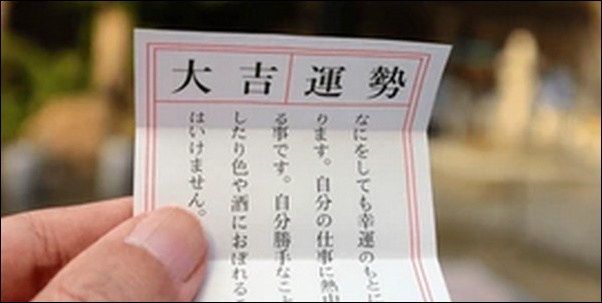 大吉 運勢
なにをしても幸運のもとに
ります。自分の仕事に熱
る事です。自分勝手なこと
したり色や酒におぼれる
はいけません。